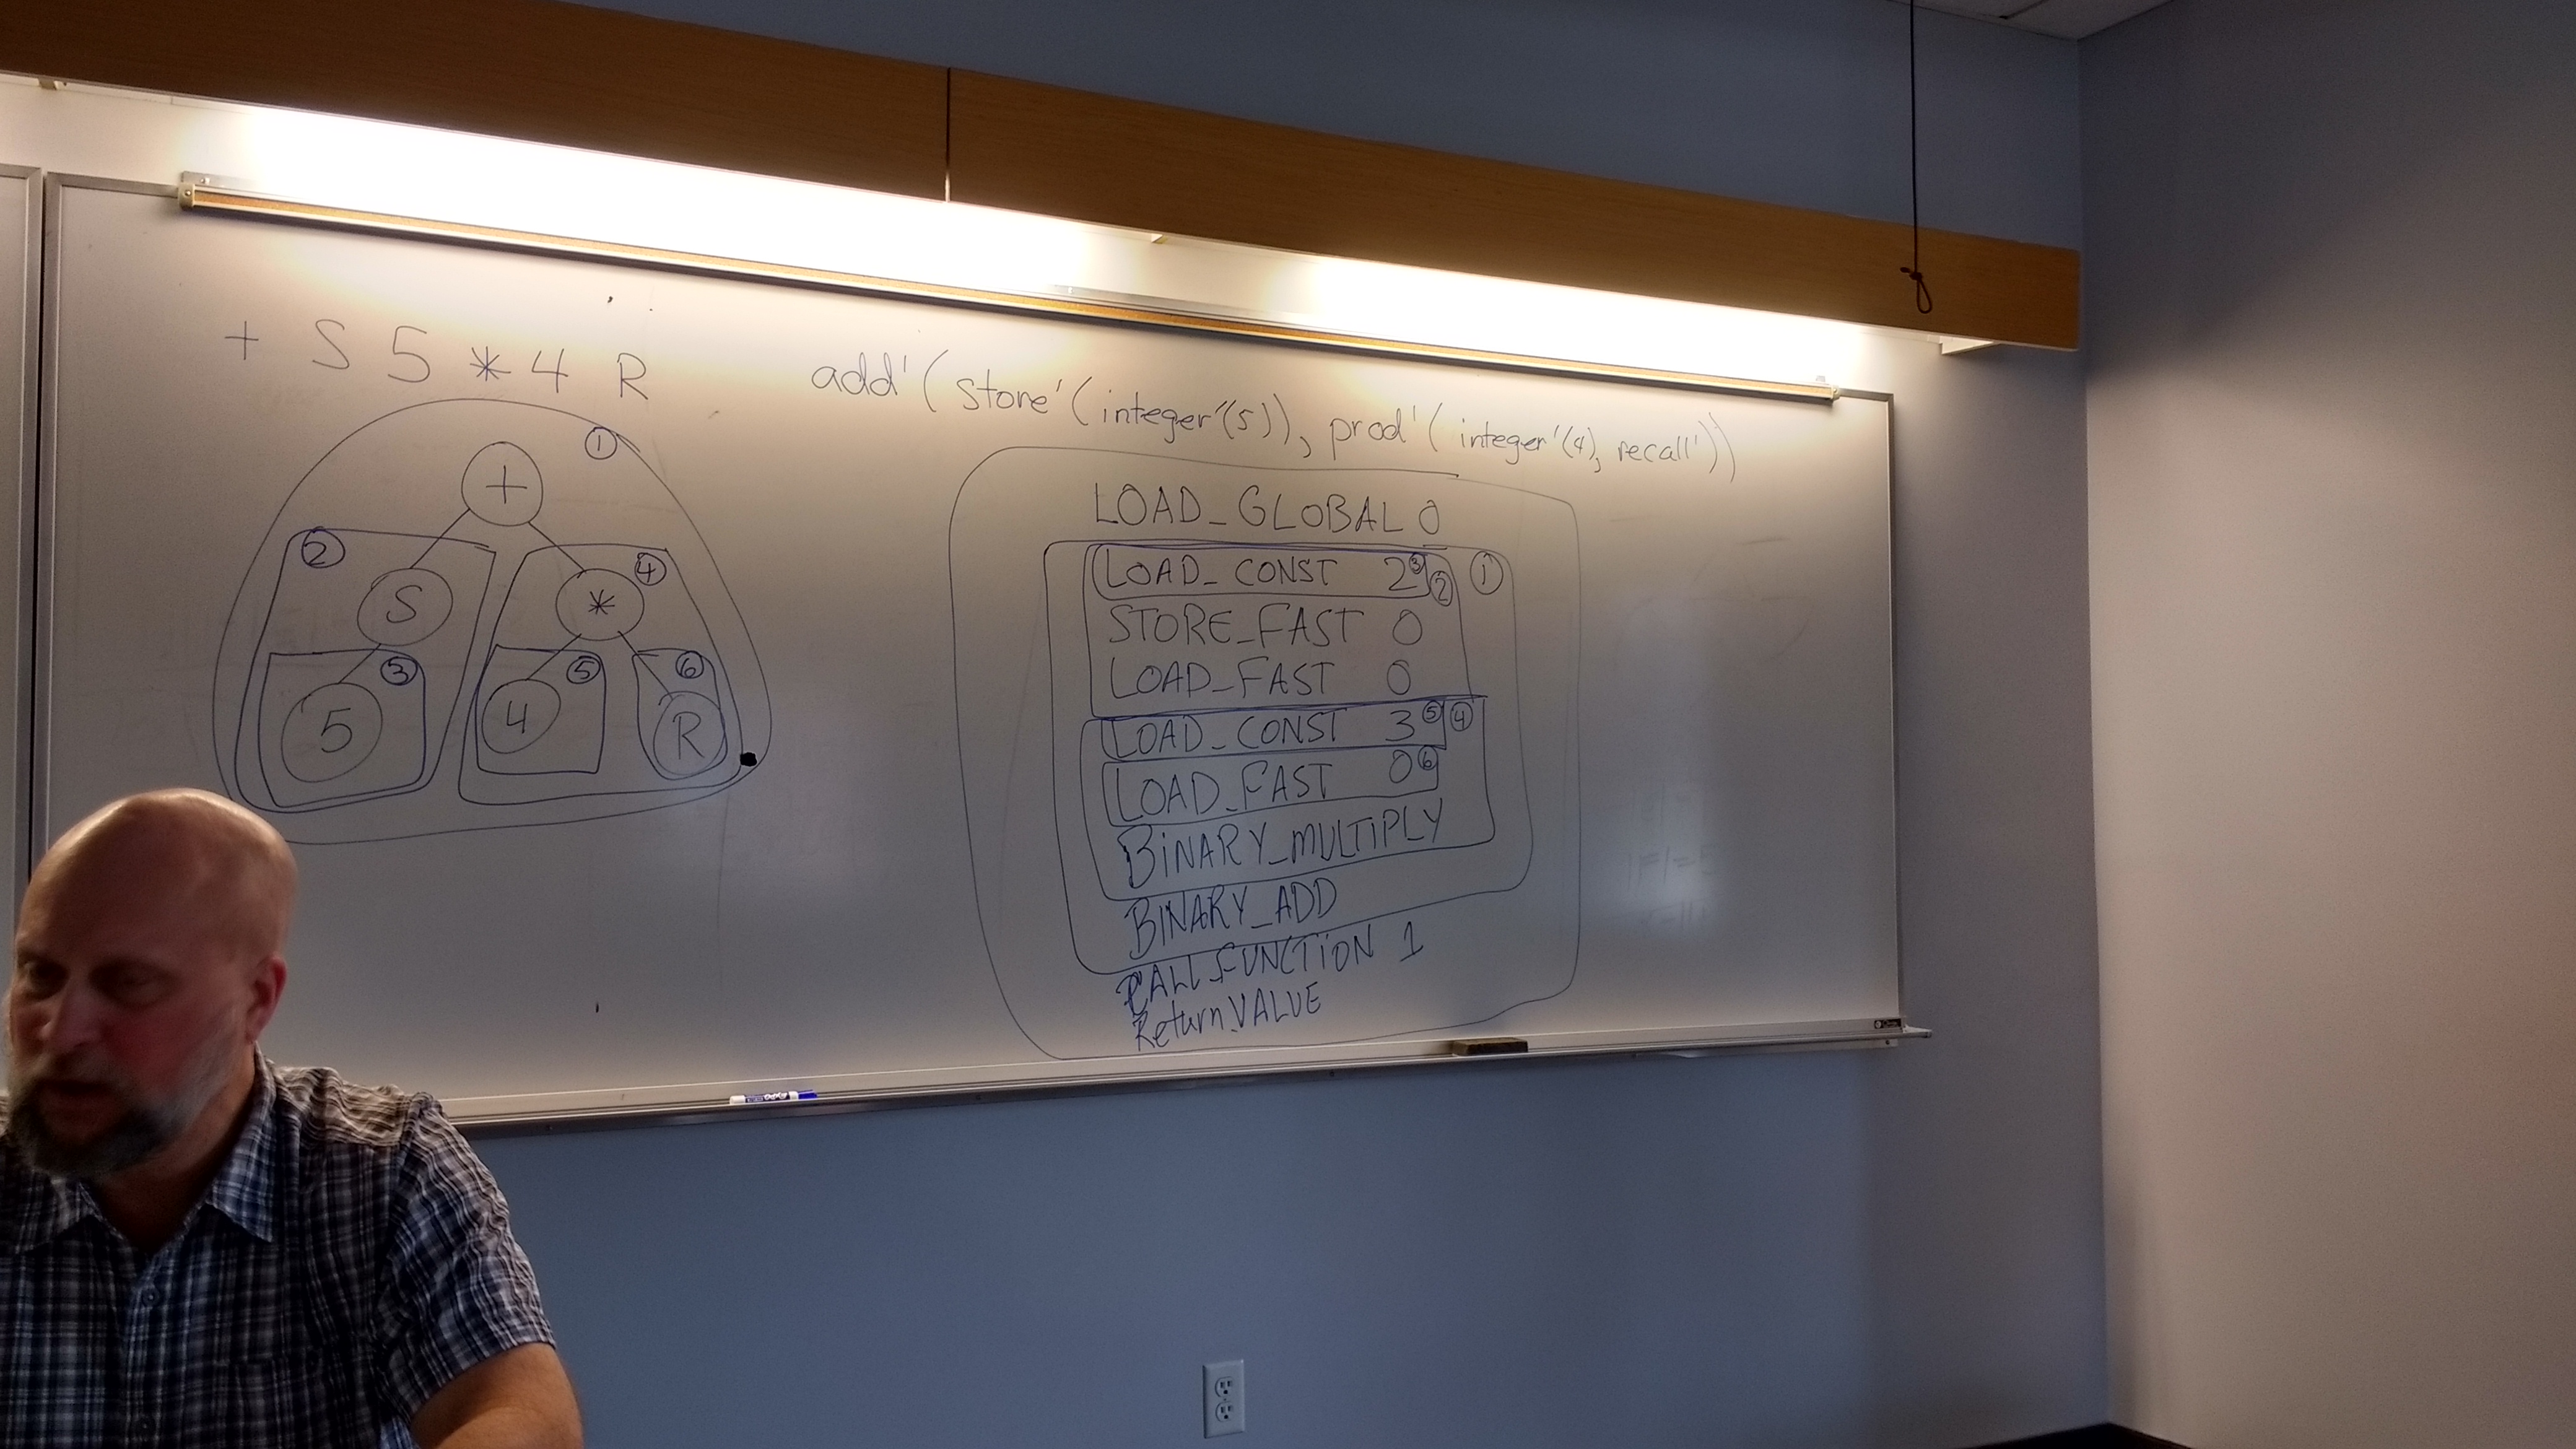 + S 5 * 4 R
add'(store'(integer'(5)), prod'(integer'(4), recall'))
①
+
②
S
④
*
③
5
⑤
4
⑥
R
LOAD_GLOBAL 0
LOAD_CONST 2 ③ ② ①
STORE_FAST 0
LOAD_FAST 0
LOAD_CONST 3 ⑤ ④
LOAD_FAST 0 ⑥
BiNARY_MULTiPLY
BINARY_ADD
CALL_FUNCTiON 1
Return_VALUE